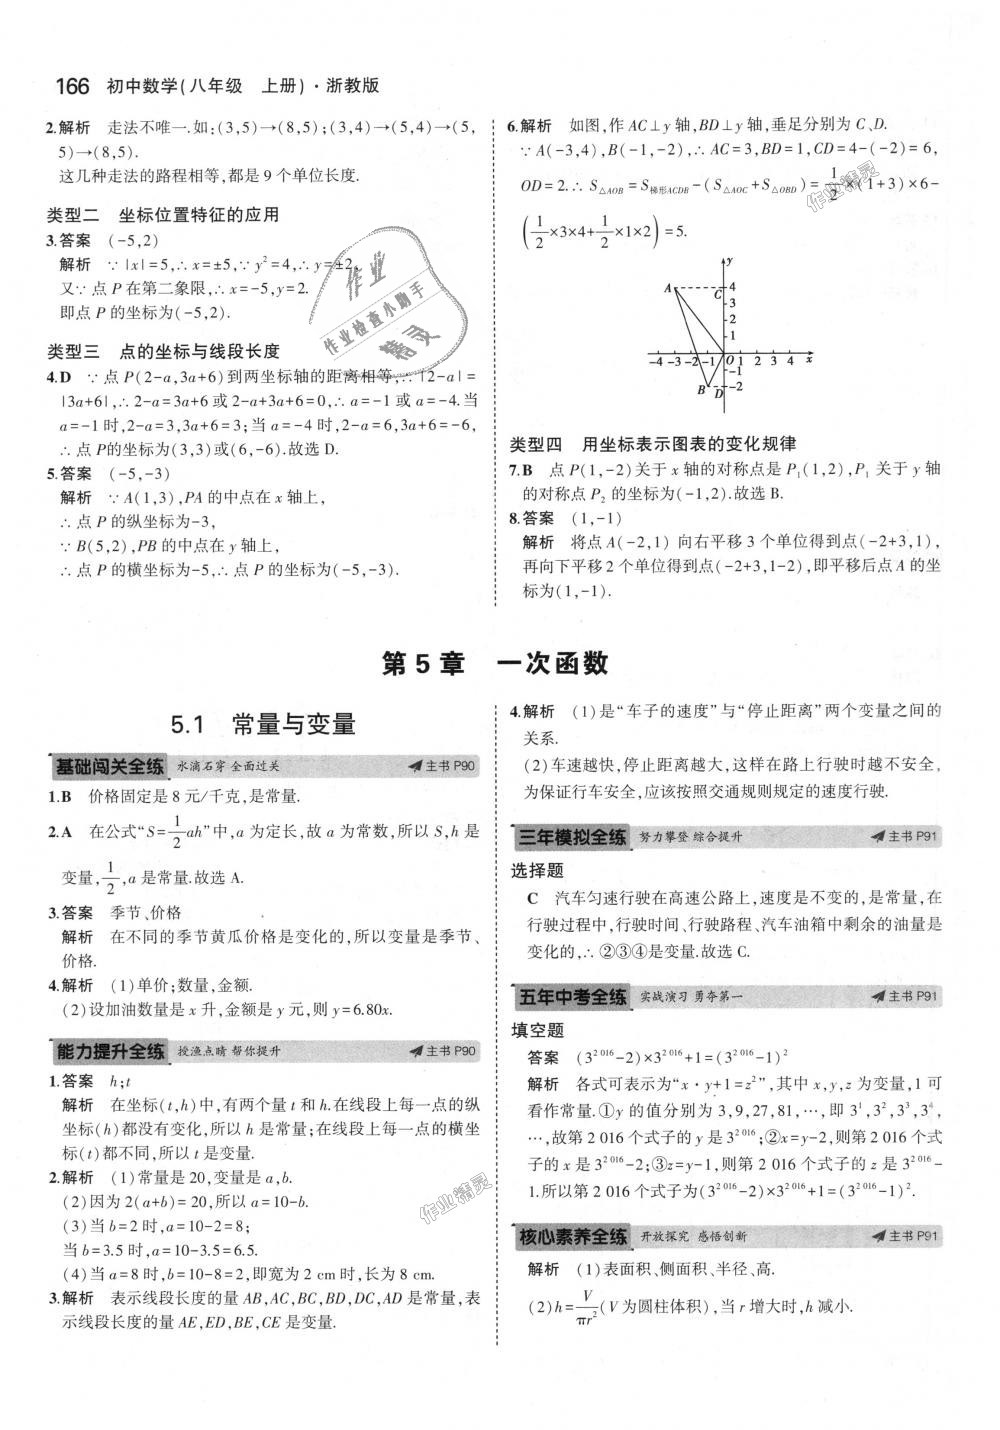 166 初中数学(八年级 上册)·浙教版
2.解析 走法不唯一.如:(3,5)→(8,5);(3,4)→(5,4)→(5,
5)→(8,5).
这几种走法的路程相等,都是9个单位长度.
类型二 坐标位置特征的应用
3.答案 (-5,2)
解析 ∵|x|=5,∴x=±5,∵y²=4,∴y=±2.
又∵点P在第二象限,∴x=-5,y=2.
即点P的坐标为(-5,2).
类型三 点的坐标与线段长度
4.D ∵点P(2-a,3a+6)到两坐标轴的距离相等,∴|2-a|=
|3a+6|,∴2-a=3a+6或2-a+3a+6=0,∴a=-1或a=-4.当
a=-1时,2-a=3,3a+6=3;当a=-4时,2-a=6,3a+6=-6,
∴点P的坐标为(3,3)或(6,-6).故选D.
5.答案 (-5,-3)
解析 ∵A(1,3),PA的中点在x轴上,
∴点P的纵坐标为-3,
∵B(5,2),PB的中点在y轴上,
∴点P的横坐标为-5,∴点P的坐标为(-5,-3).
6.解析 如图,作AC⊥y轴,BD⊥y轴,垂足分别为C、D.
∵A(-3,4),B(-1,-2),∴AC=3,BD=1,CD=4-(-2)=6,
OD=2.∴S△AOB=S梯形ACDB-(S△AOC+S△OBD)=1/2×(1+3)×6-
(1/2×3×4+1/2×1×2)=5.
y
A C 4
3
2
1
-4 -3 -2 -1 O 1 2 3 4 x
-1
B D -2
类型四 用坐标表示图表的变化规律
7.B 点P(1,-2)关于x轴的对称点是P₁(1,2),P₁关于y轴
的对称点P₂的坐标为(-1,2).故选B.
8.答案 (1,-1)
解析 将点A(-2,1)向右平移3个单位得到点(-2+3,1),
再向下平移2个单位得到点(-2+3,1-2),即平移后点A的坐
标为(1,-1).
作业
作业检查小助手
精灵
作业精灵
第5章 一次函数
5.1 常量与变量
基础闯关全练 水滴石穿 全面过关 主书P90
1.B 价格固定是8元/千克,是常量.
2.A 在公式“S=1/2ah”中,a为定长,故a为常数,所以S,h是
变量,1/2,a是常量.故选A.
3.答案 季节、价格
解析 在不同的季节黄瓜价格是变化的,所以变量是季节、
价格.
4.解析 (1)单价;数量,金额.
(2)设加油数量是x升,金额是y元,则y=6.80x.
能力提升全练 授渔点睛 帮你提升 主书P90
1.答案 h;t
解析 在坐标(t,h)中,有两个量t和h.在线段上每一点的纵
坐标(h)都没有变化,所以h是常量;在线段上每一点的横坐
标(t)都不同,所以t是变量.
2.解析 (1)常量是20,变量是a,b.
(2)因为2(a+b)=20,所以a=10-b.
(3)当b=2时,a=10-2=8;
当b=3.5时,a=10-3.5=6.5.
(4)当a=8时,b=10-8=2,即宽为2 cm时,长为8 cm.
3.解析 表示线段长度的量AB,AC,BC,BD,DC,AD是常量,表
示线段长度的量AE,ED,BE,CE是变量.
作业精灵
4.解析 (1)是“车子的速度”与“停止距离”两个变量之间的
关系.
(2)车速越快,停止距离越大,这样在路上行驶时越不安全,
为保证行车安全,应该按照交通规则规定的速度行驶.
三年模拟全练 努力攀登 综合提升 主书P91
选择题
C 汽车匀速行驶在高速公路上,速度是不变的,是常量,在
行驶过程中,行驶时间、行驶路程、汽车油箱中剩余的油量是
变化的,∴②③④是变量.故选C.
五年中考全练 实战演习 勇夺第一 主书P91
填空题
答案 (3^2 016-2)×3^2 016+1=(3^2 016-1)²
解析 各式可表示为“x·y+1=z²”,其中x,y,z为变量,1可
看作常量.①y的值分别为3,9,27,81,…,即3¹,3²,3³,3⁴,
…,故第2 016个式子的y是3^2 016;②x=y-2,则第2 016个式
子的x是3^2 016-2;③z=y-1,则第2 016个式子的z是3^2 016-
1.所以第2 016个式子为(3^2 016-2)×3^2 016+1=(3^2 016-1)².
核心素养全练 开放探究 感悟创新 主书P91
解析 (1)表面积、侧面积、半径、高.
(2)h=V/πr²(V为圆柱体积),当r增大时,h减小.